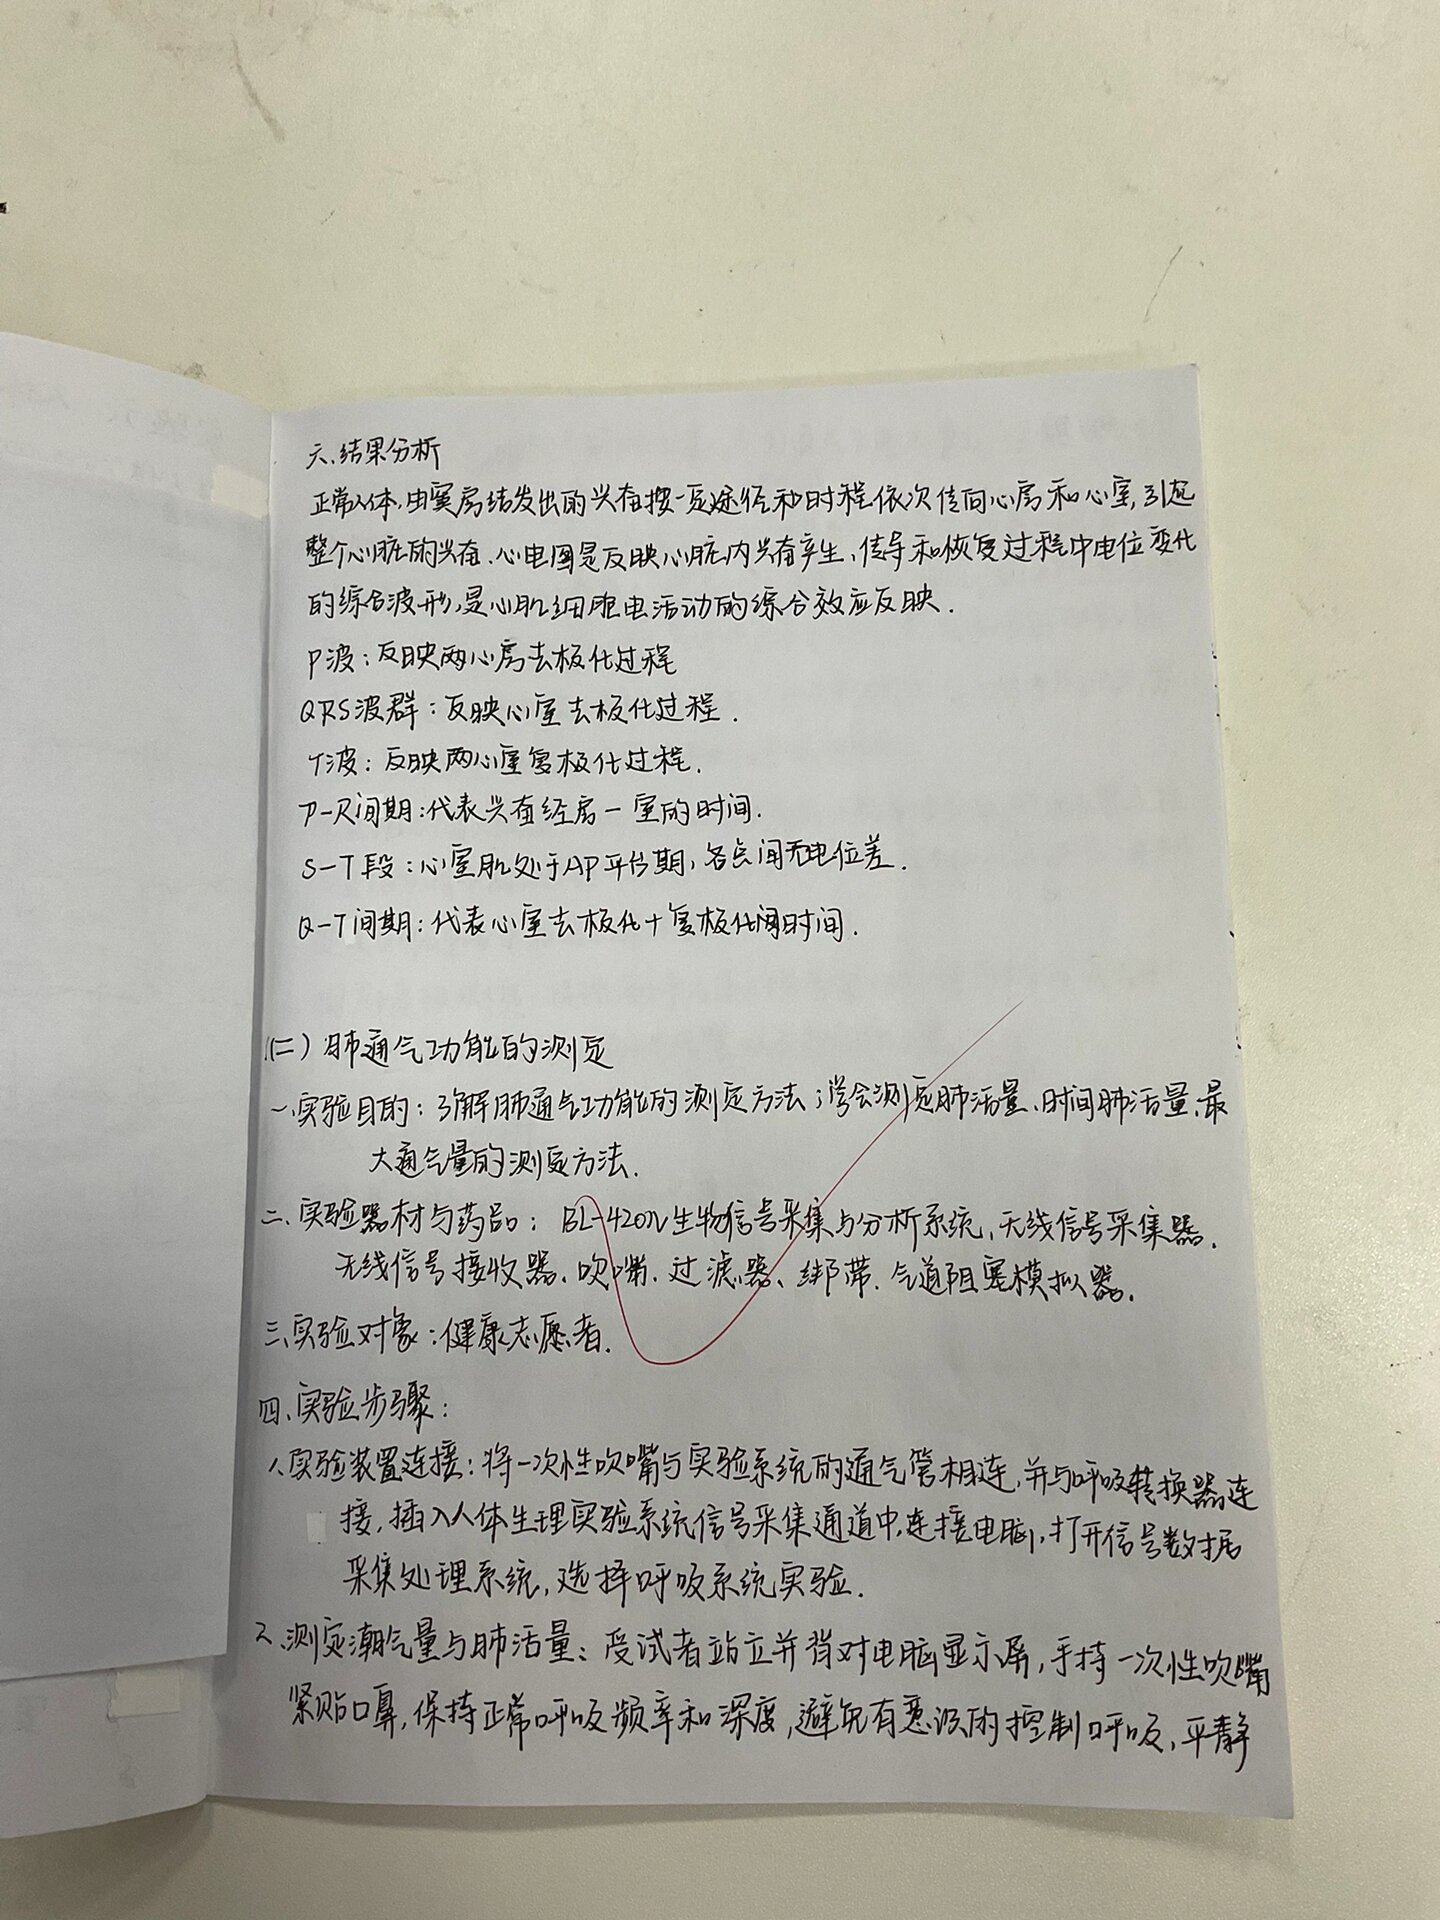 六、结果分析
正常人体,由窦房结发出的兴奋按一定途径和时程依次传向心房和心室,引起
整个心脏的兴奋.心电图是反映心脏内兴奋产生、传导和恢复过程中电位变化
的综合波形,是心肌细胞电活动的综合效应反映.
P波:反映两心房去极化过程
QRS波群:反映心室去极化过程.
T波:反映两心室复极化过程.
P-R间期:代表兴奋经房-室的时间.
S-T段:心室肌处于AP平台期,各点间无电位差.
Q-T间期:代表心室去极化+复极化间时间.
(二)肺通气功能的测定
一、实验目的:了解肺通气功能的测定方法;学会测定肺活量、时间肺活量、最
大通气量的测定方法.
二、实验器材与药品:BL-420N生物信号采集与分析系统,无线信号采集器.
无线信号接收器、吹嘴.过滤器、绑带.气道阻塞模拟器.
三、实验对象:健康志愿者.
四、实验步骤:
1、实验装置连接:将一次性吹嘴与实验系统的通气管相连,并与呼吸转换器连
接,插入人体生理实验系统信号采集通道中,连接电脑,打开信号数据
采集处理系统,选择呼吸系统实验.
2、测定潮气量与肺活量:受试者站立并背对电脑显示屏,手持一次性吹嘴
紧贴口鼻,保持正常呼吸频率和深度,避免有意识的控制呼吸,平静